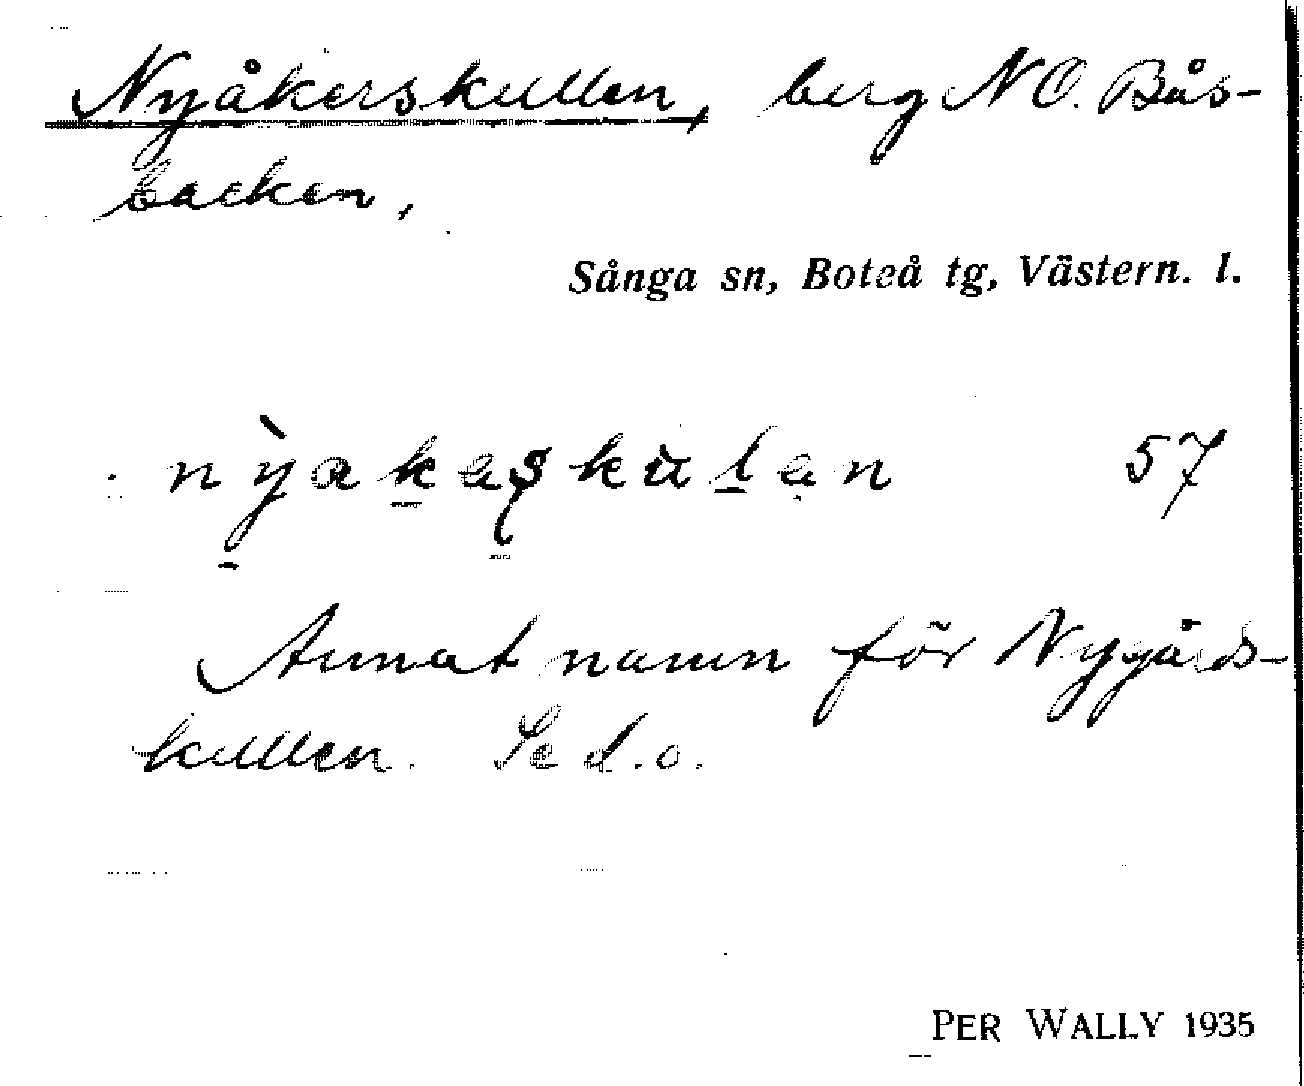 Nyåkerskullen, berg N O. Bås-
backen,
Sånga sn, Boteå tg, Västern. l.
nỳakaşkulan 57
Annat namn för Nygårds-
kullen. Se d.o.
PER WALLY 1935